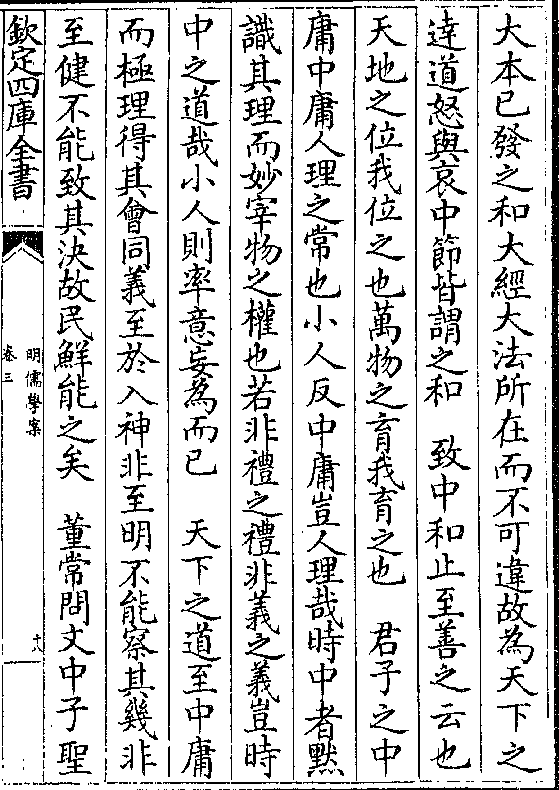 大本已發之和大經大法所在而不可違故為天下之
逹道怒與哀中節皆謂之和　致中和止至善之云也
天地之位我位之也萬物之育我育之也　君子之中
庸中庸人理之常也小人反中庸豈人理哉時中者黙
識其理而妙宰物之權也若非禮之禮非義之義豈時
中之道哉小人則率意妄為而已　天下之道至中庸
而極理得其會同義至於入神非至明不能察其幾非
至健不能致其決故民鮮能之矣　董常問文中子聖
欽定四庫全書
明儒學案
卷三
十八